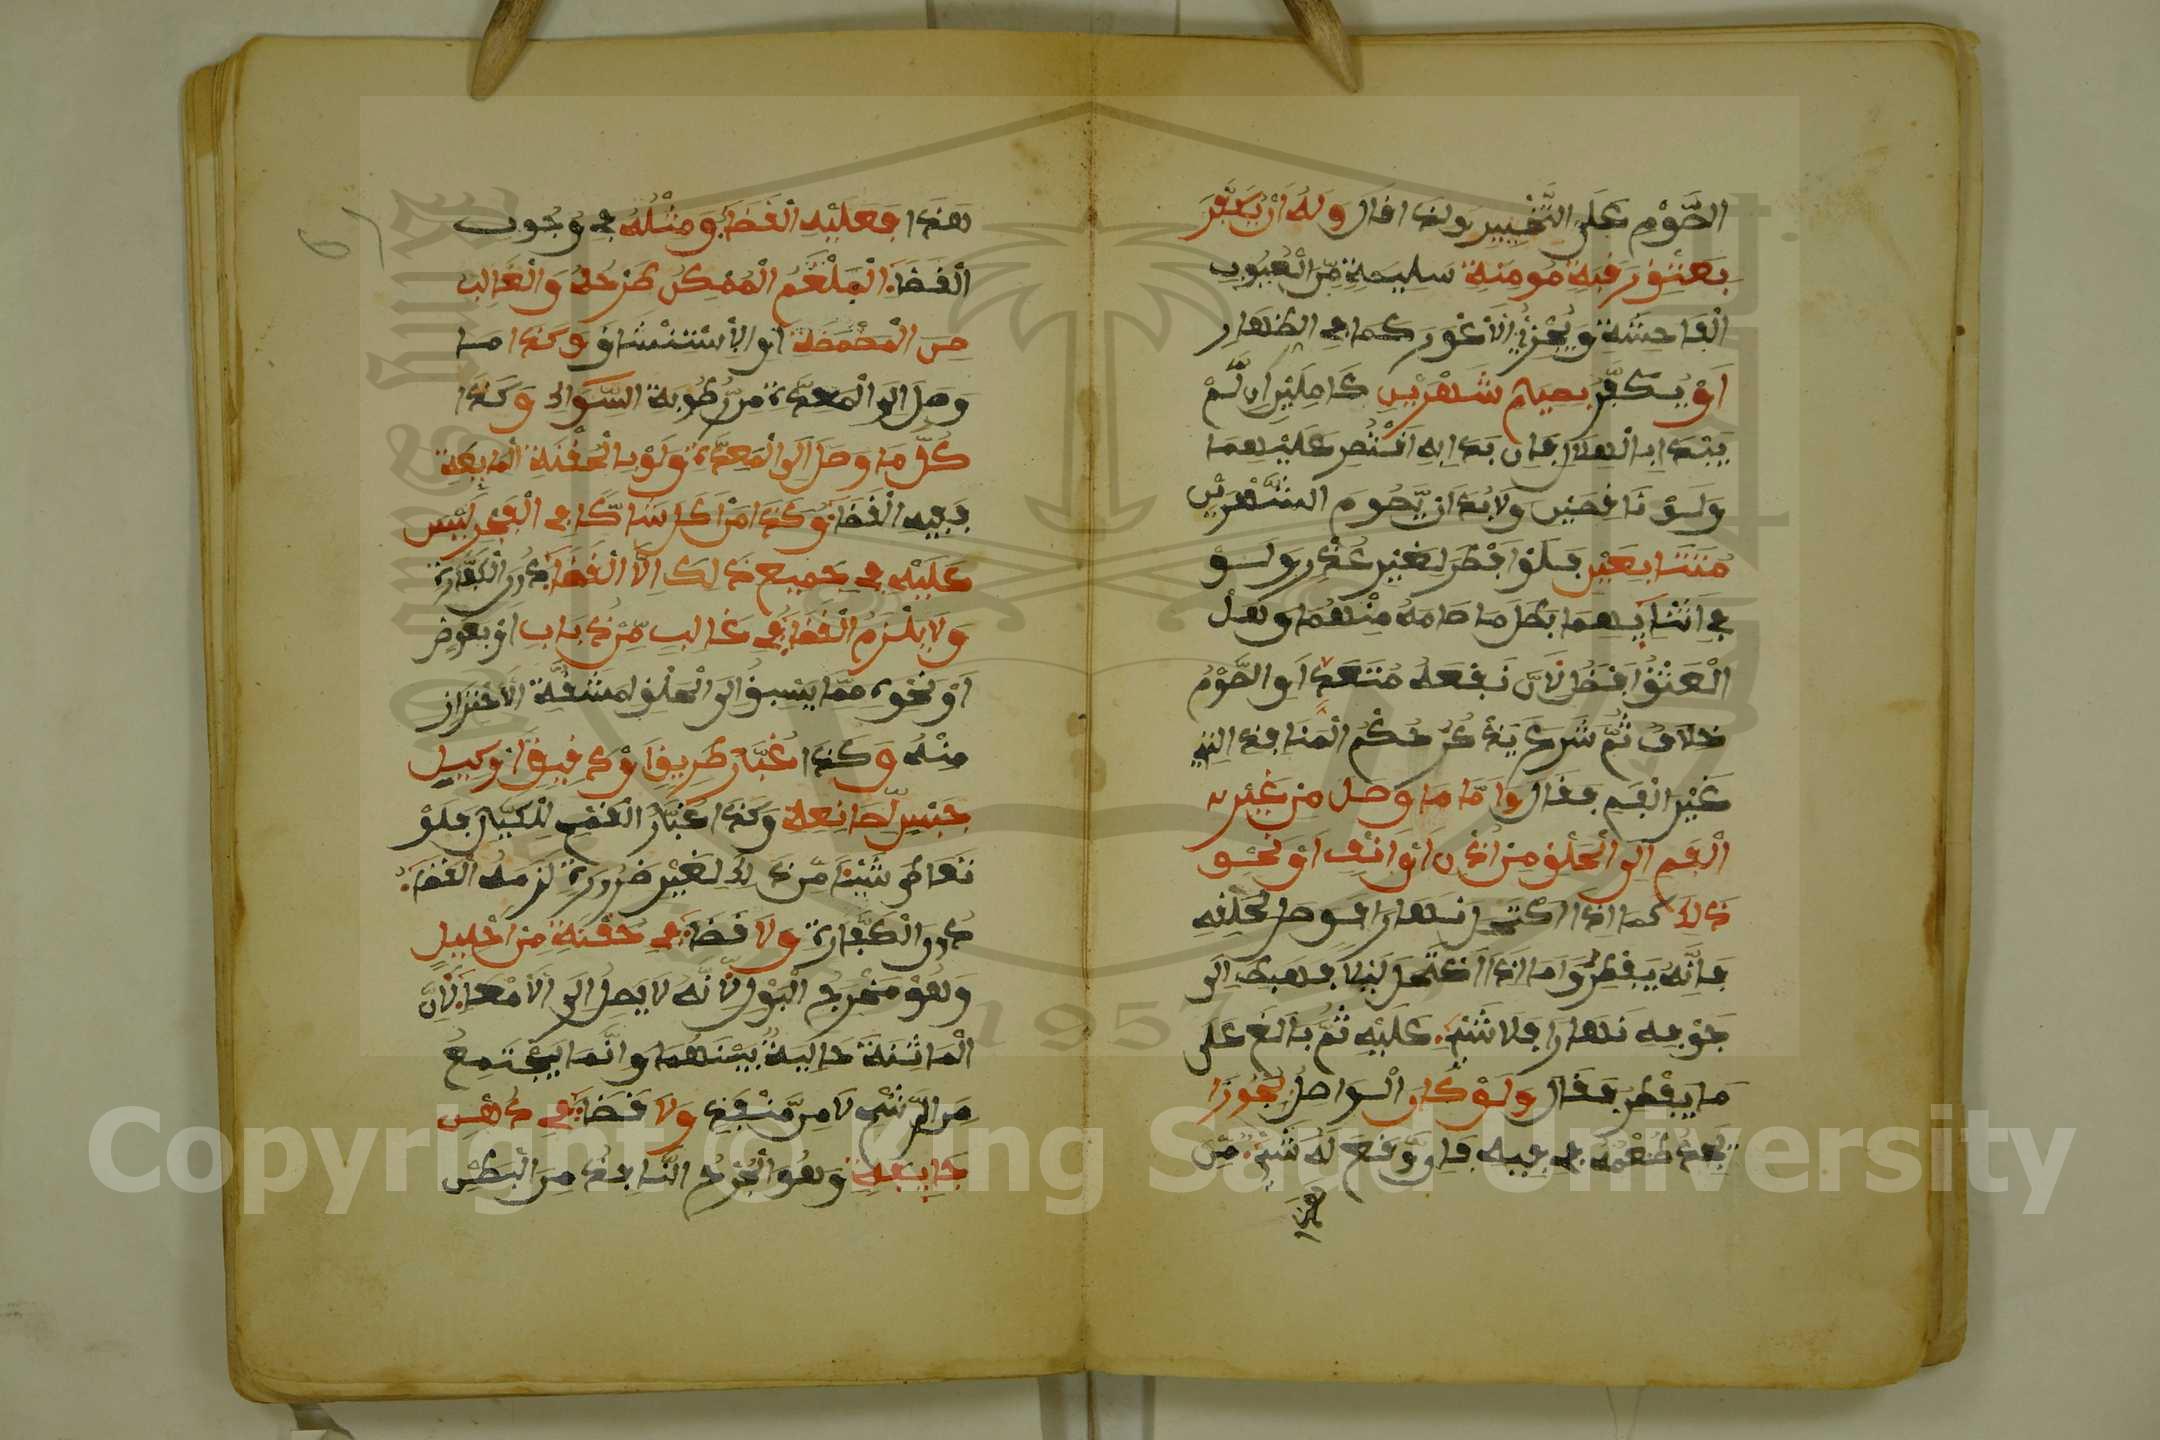 الصَّوْمِ عَلَى التَّخْيِيرِ ولذا قال وَلَهُ أَنْ يُكَفِّرَ
بِعَتْقِ رَقَبِةٍ مُومِنَةٍ سَلِيمَةٍ مِّنَ الْعُيُوبِ
الْفَاحِشَةِ وَيُجْزِئُ الْأَعْوَر كما في الظهار
أَوْ يُكَفِّرُ بِصِيَامِ شَهْرَيْنِ كَامِلَيْنِ إن لَّمْ
يَبْتَدِا بِالْهِلَالِ فإن بَدَا بِهِ اقْتُصِر عَلَيْهِمَا
وَلَوْ نَاقِصَيْنِ وَلَابُدَّ أَن يَّصُومَ الشَّهْرَيْنِ
مُتَتَابِعَيْنِ فَلَوْ أَفْطَرَ لِغَيْرِ عُذْرٍ وَلَوْ
فِي أَثْنَايِهِمَا بَطَلَ مَا صَامَهُ مِنْهُمَا وَهَلْ
الْعَتْقُ أَفْضَلُ لِأَنَّ نَفْعَهُ مُتَعَدٍّ أَوِ الصَّوْمُ
خلافٌ ثُمَّ شَرَعَ يَذْكُرُ حُكْمَ الْمَنَافِذِ التي
غَيْرَ الْفَمِ فَقَال وَأَمَّا مَا وَصَلَ مِن غَيْرِ
الْفَمِ إلَى الْحَلْقِ مِنْ أُذْنٍ أَوْ أَنْفٍ أَوْ نَحْوِ
ذَلِكَ كما إذَا اكْتَحَلَ نَهَارًا فَوصَل لِحَلْقِهِ
فَإنَّهُ يَفْطِرُ وَأما إذَا اكْتَحَلَ لَيْلًا فَهَبَطَ إلَى
جَوْفِهِ نَهَارا فَلا شَيْءَ عَلَيْهِ ثُمَّ بَالَغ عَلَى
مَا يَفْطِرُ فَقَال وَلَوْ كَانَ الْوَاصِلُ بُخُورًا
يَجِدُ طُعْمَهُ فِي فِيهِ فَإن وَّقَعَ لَهُ شَيْءٌ مِّنْ
هَذَا فَعَلَيْهِ الْقَضَاءُ وَمِثْلُهُ فِي وُجُوب
الْقَضَاءِ الْبَلْغَمُ الْمُمْكِنُ طَرْحُهُ وَالْغَالِبُ
مِنَ الْمَضْمَضَةِ أَوِ الِاسْتِنْشَاقِ وَكَذَا مَا
وَصَلَ إلَى الْمَعِدَةِ مِن رُّطُوبَةِ السِّوَاكِ وَكَذَا
كُلُّ مَا وَصَلَ إلَى الْمَعِدَةِ وَلَوْ بِالْحُقْنَةِ الْمَايِعَةِ
فَفِيهِ الْقَضَاءُ وَكَذَا مَنْ أَكَلَ شَاكًّا فِي الْفَجْرِ لَيْسَ
عَلَيْهِ فِي جَمِيعِ ذَلِكَ إلَّا الْقَضَاءُ دُونَ الْكَفَّارَةِ
وَلَا يَلْزَمُ الْقَضَاءُ فِي غَالِبٍ مِّنْ ذُبَابٍ أَوْ بَعُوضٍ
أَوْ نَحْوِهِ مِمَّا يَسْبِقُ إلَى الْحَلْقِ لِمَشَقَّةِ الْاحْتِرَازِ
مِنْهُ وَكَذَا غُبَارُ طَرِيقٍ أَوْ دَقِيقٍ أَوْ كَيْلِ
جَبْسٍ لِّصَانِعِهِ وَكَذَا غُبَارُ الْقَمْحِ لِلْكَيَّالِ فَلَوْ
تَعَاطَى شَيْئًا مِّنْ ذَلِكَ لِغَيْرِ ضَرُورَةٍ لَزِمَهُ الْقَضَاءُ
دُونَ الْكَفَّارَةِ وَلَا قَضَاءَ فِي حُقْنَةٍ مِّنْ إحْلِيلٍ
وَهُوَ مَخْرَجُ الْبَوْلِ لِأَنَّهُ لَا يَصِلُ إلَى الْأَمْعَاءِ لِأَنَّ
الْمَاثَنَةَ حَايِلَةٌ بَيْنَهُمَا وَإِنَّمَا يَجْتَمِعُ
مِنَ الرَّشْحِ لَا مِن مَّنْفَذٍ وَلَا قَضَاءَ فِي دُهْنِ
جَايِفَةٍ وَهُوَ الْجُرْحُ النَّافِذُ مِنَ الْبَطْنِ